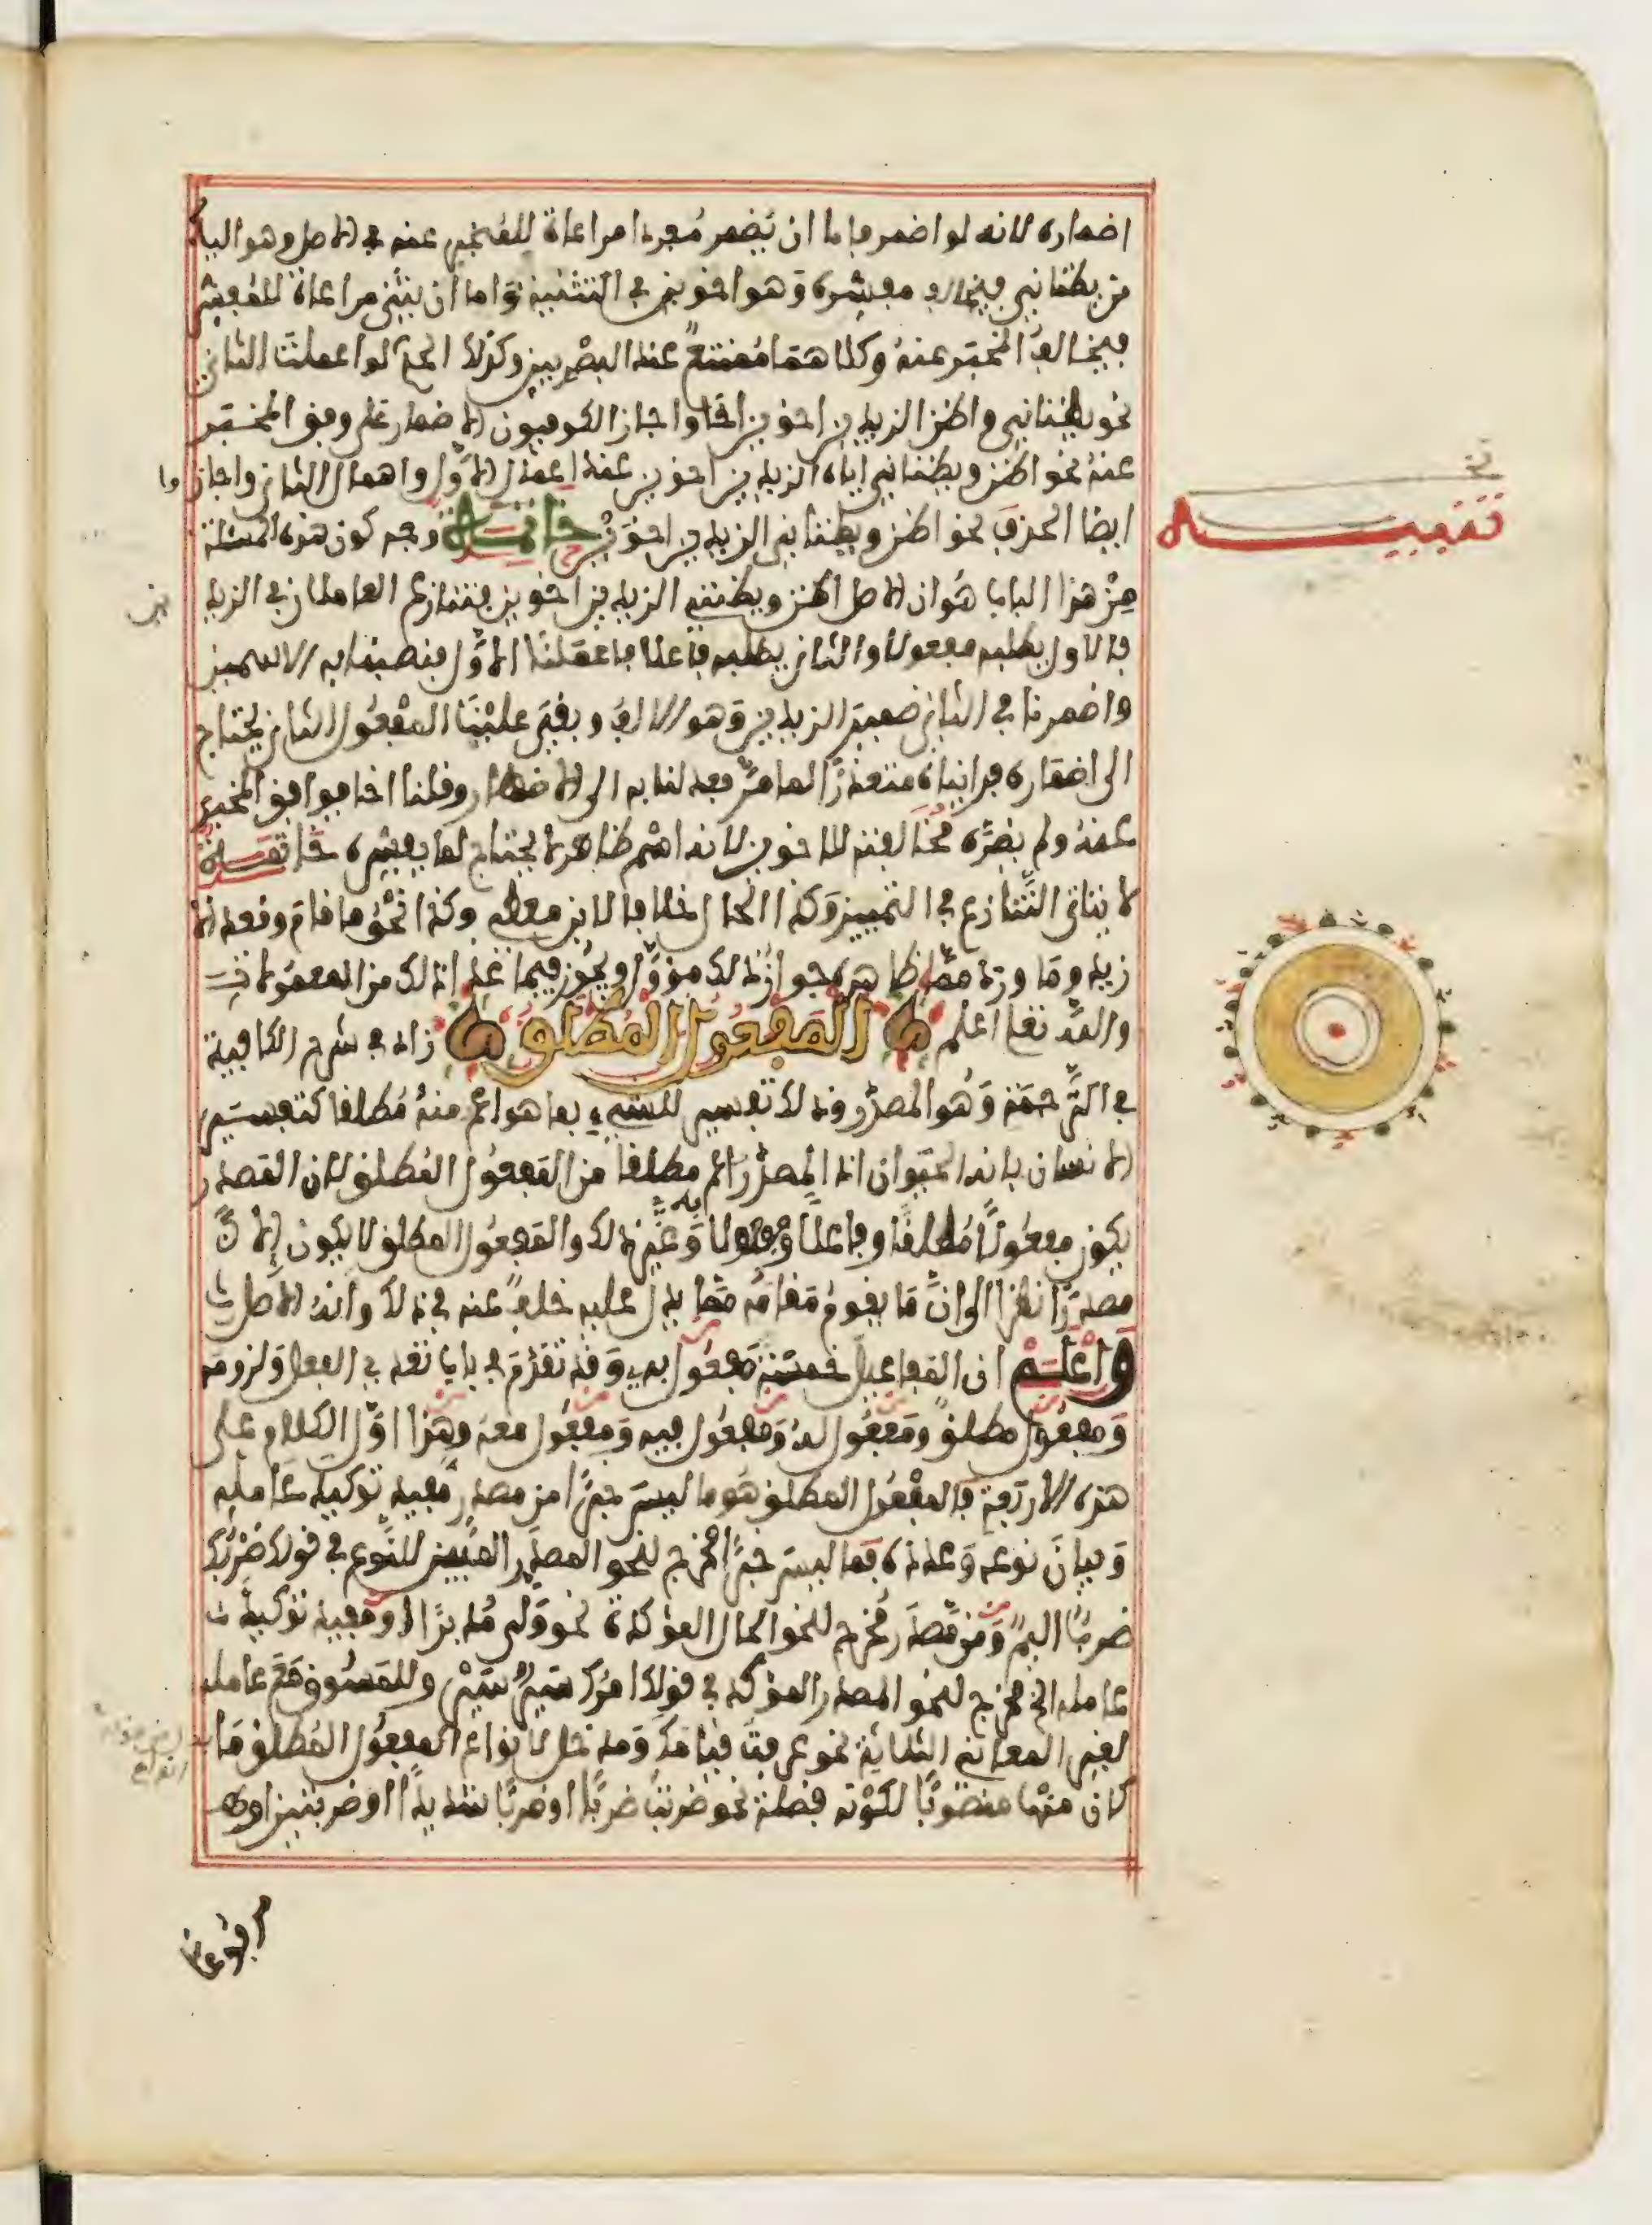 اضماره لانه لو اضمر فاما ان يضمر مفردا مراعاة للمخبر عنه في الاصل وهو الياء
من يظناني فيخالف مفسره وهو اخوين في التثنية واما ان يثنى مراعاة للمفسر
فيخالف المخبر عنه وكلاهما ممتنع عند البصريين وكذلك الحكم لو اعملت الثاني
نحو يظناني واظن الزيدين اخوين اخا واجاز الكوفيون الاضمار على وفق المخبر
عنه نحو اظن ويظناني اياه الزيدين اخوين عند اعمال الاول واهمال الثاني واجازوا
ايضا الحذف نحو اظن ويظناني الزيدين اخوين خاتمة وجه كون هذه المسئلة
من هذا الباب هو ان الاصل اظن ويظنني الزيدين اخوين فتنازع العاملان في الزيدين
فالاول يطلبه مفعولا والثاني يطلبه فاعلا فاعملنا الاول فنصبنا به الاسمين
واضمرنا في الثاني ضمير الزيدين وهو الالف وبقي علينا المفعول الثاني يحتاج
الى اضماره فرايناه متعذرا لما مر فعدلنا به الى الاظهار وقلنا اخا فوافق المخبر
عنه ولم يضره مخالفته للاخوين لانه اسم ظاهر لا يحتاج لما يفسره خاتمة
لا يتاتى التنازع في التمييز وكذا الحال خلافا لابن معطي وكذا نحو ما قام وقعد الا
زيد وما ورد مما ظاهره جواز ذلك مؤول ويجوز فيما عدا ذلك من المعمولات
والله تعالى اعلم المفعول المطلق زاد في شرح الكافية
في الترجمة وهو المصدر وذلك تفسير للشيء بما هو اعم منه مطلقا كتفسير
الانسان بانه الحيوان اذ المصدر اعم مطلقا من المفعول المطلق لان المصدر
يكون مفعولا مطلقا وفاعلا ومفعولا به وغير ذلك والمفعول المطلق لا يكون الا
مصدرا نظرا الى ان ما يقوم مقامه مما يدل عليه خلف عنه في ذلك وانه الاصل
واعلم ان المفاعيل خمسة مفعول به وقد تقدم في باب تعدي الفعل ولزومه
ومفعول مطلق ومفعول له ومفعول فيه ومفعول معه وهذا اول الكلام على
هذه الاربعة فالمفعول المطلق هو ما ليس خبرا من مصدر مفيد توكيد عامله
وبيان نوعه وعدده فما ليس خبرا مخرج لنحو المصدر المبين للنوع في قولك ضربك
ضرب اليم ومن مصدر مخرج لنحو الحال المؤكدة نحو ولى مدبرا ومفيد توكيد
عامله الخ مخرج لنحو المصدر المؤكد في قولك امرك سير سير وللمسوق مع عامله
لغير المعاني الثلاثة نحو عرفت قيامك ومدخل لانواع المفعول المطلق ما
كان منها منصوبا لكونه فضلة نحو ضربت ضربا او ضربا شديدا او ضربتين او
مرفوعا
تتمة